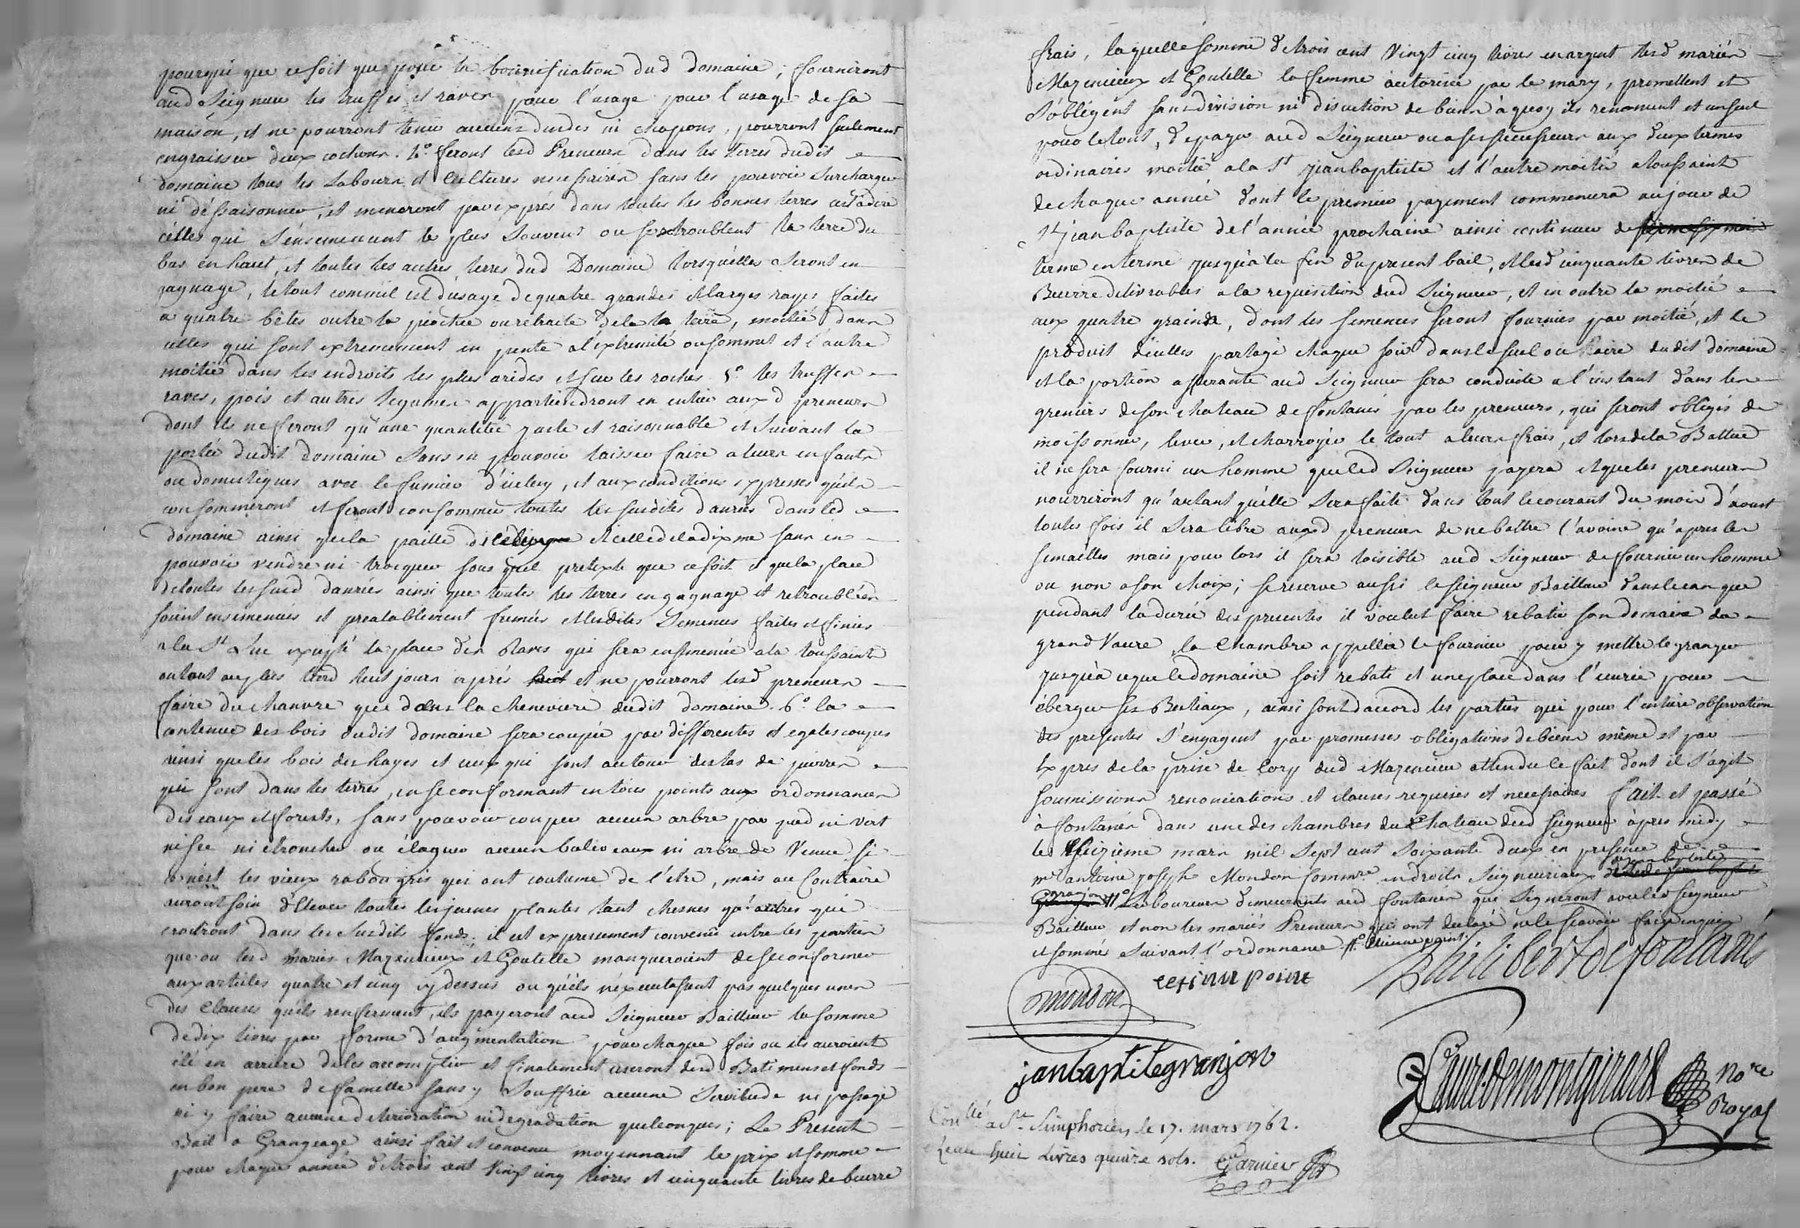 pourquoi que ce soit que pour la bonnification dud domaine, fourniront
aud Seigneur les truffes et raves pour l'usage pour l'usage de sa
maison, et ne pourront tenir aucuns dindes ni chapons, pourront seulement
engraisser deux cochons. 4º feront lesd Preneurs dans les terres dudit
domaine tous les Labours et Cultures necessaires sans les pouvoir surcharger
ni déssaisonner, et meneront par exprés dans toutes les bonnes terres cest adire
celles qui s'ensemencent le plus souvent ou se retroublent la terre du
bas en haut, et toutes les autres terres dud Domaine lorsquelles seront en
gagnage, le tout comme il est d'usage de quatre grandes et larges rayes faites
a quatre bêtes outre la piochée ou retraite de la terre, moitié dans
celles qui sont extremement en pente a l'extremité ou sommet et l'autre
moitié dans les endroits les plus arides et sur les roches 5º les truffes
raves, pois et autres legumes appartiendront en entier auxd preneurs
dont ils ne feront qu'une quantitée juste et raisonnable et suivant la
portée dudit domaine sans en pouvoir laisser faire a leurs enfants
ou domestiques avec le fumier d'iceluy, et aux conditions expresses qu'ils
consommeront et feront consommer toutes les susdites danrées dans led
domaine ainsi que la paille et celle de la dixme sans en
pouvoir vendre ni troquer sous quel pretexte que ce soit que la place
de toutes lesusd danrées ainsi que toutes les terres en gagnage et retroublées
soient ensemencées et prealablement fumées et lesdites Semences faites et finies
a la St Luc excepté la place des Raves qui sera ensemencée a la toussaint
ou tout au plus tard huit jours aprés et ne pourront lesd preneurs
faire du chanvre que dans la cheneviere dudit domaine. 6º la
contenue des bois dudit domaine sera coupée par differentes et egales coupes
ainsi que les bois des hayes et ceux qui sont autour des tas de pierres
qui sont dans les terres, en se conformant en tous points aux ordonnances
des eaux et forests, sans pouvoir couper aucun arbre par pied ni vert
ni sec ni etroncher ou élaguer aucun baliveaux ni arbre de Venue si
ce n'est les vieux rabougris qui ont coutume de l'être, mais au Contraire
auront soin d'elever toutes les jeunes plantes tant chesnes qu'autres qui
croitront dans les susdits fonds, il est expressement convenu entre les parties
que ou lesd mariés Mazenieux et Goutelle manqueroient de se conformer
aux articles quatre et cinq cy dessus ou qu'ils n'executassent pas quelques unes
des Clauses qu'ils renferment, ils payeront aud Seigneur Bailleur la somme
de dix livres par forme d'augmentation pour chaque fois ou ils auroient
été en arriere de les accomplir et finalement useront desd Batimens et fonds
en bon pere de famille sans y souffrir aucune Servitude ni passage
ni y faire aucune deterioration ni degradation quelconques; Le Present
Bail a Grangeage ainsi fait et convenu moyennant le prix et somme
pour chaque année de trois cent vingt cinq livres et cinquante livres de beurre
frais, laquelle somme de trois cent vingt cinq livres en argent lesd mariés
Mazenieux et Goutelle la femme autorisée par le mary, promettent et
s'obligent sans division ni discution de biens a quoy ils renoncent et un seul
pour le tout, de payer aud Seigneur ou a ses successeurs aux deux termes
ordinaires moitié a la St Jean baptiste et l'autre moitié a toussaint
de chaque année dont le premier payement commencera au jour de
St Jean baptiste de l'année prochaine ainsi continuer de
terme en terme jusqu'a la fin du present bail, et lesd cinquante livres de
Beurre delivrables a la requisition dud Seigneur, et en outre la moitié
aux quatre grains, dont les semences seront fournies par moitié, et le
produit d'icelles partagé chaque fois dans le suel ou haire dudit domaine
et la portion afferante aud Seigneur sera conduite a l'instant dans les
greniers de son chateau de fontanés par les preneurs, qui seront obligés de
moissonner, lever, et charroyer le tout a leurs frais, et lors de la Battue
il ne sera fourni un homme que led Seigneur payera et que les preneurs
nourriront qu'autant qu'elle sera faite dans tout le courant du mois d'aoust
toutes fois il sera libre auxd preneurs de ne battre l'avoine qu'apres les
semailles mais pour lors il sera loisible aud Seigneur de fournir un homme
ou non a son choix; se reserve aussi le seigneur Bailleur dans le cas que
pendant la durée des presentes il voulut faire rebatir son domaine du
grand Vaure, la chambre appellée le fournier pour y mettre le granger
jusqu'a ce que le domaine soit rebati et une place dans l'ecurie pour
éberger ses Bestiaux, ainsi sont d'accord les parties qui pour l'entiere observation
des presentes s'engagent par promesses obligations de biens même et par
Exprés de la prise de Corp dud Mazenieux attendu le fait dont il s'agit
soumissions renonciations et clauses requises et necessaires fait et passé
à fontanés dans une des chambres du Chateau dud Seigneur apres midy
le seizieme mars mil sept cent soixante deux en presence de
mre antoine joseph Mondon commre en droits Seigneuriaux
Laboureurs demeurants aud fontanés qui signeront avec led Seigneur
Bailleur et non les mariés Preneurs qui ont declaré ne le sçavoir faire enquis
et sommés suivant l'ordonnance
Philibert de fontanés
etienn point
mondon
janbaptitegranjon
Vaure de montgirard Nore Royal
Conllé a St Simphorien le 17. mars 1762.
Reçu huit livres quatre sols. Garnier